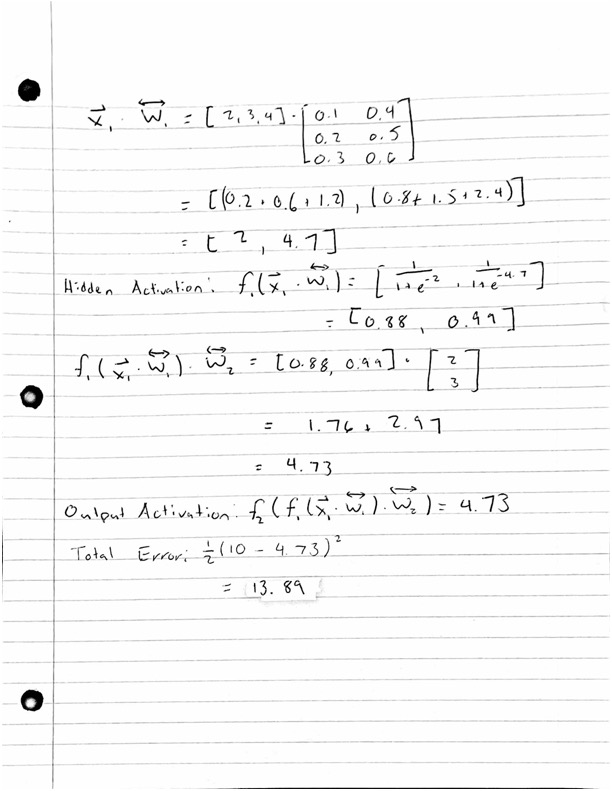 x⃗₁ · W⃡₁ = [2, 3, 4] · [0.1 0.4
0.2 0.5
0.3 0.6]
= [(0.2 + 0.6 + 1.2), (0.8 + 1.5 + 2.4)]
= [2, 4.7]
Hidden Activation: f₁(x⃗₁ · W⃡₁) = [1/(1+e⁻²), 1/(1+e⁻⁴·⁷)]
= [0.88, 0.99]
f₁(x⃗₁ · W⃡₁) · W⃡₂ = [0.88, 0.99] · [2
3]
= 1.76 + 2.97
= 4.73
Output Activation: f₂(f₁(x⃗₁ · W⃡₁) · W⃡₂) = 4.73
Total Error: ½(10 - 4.73)²
= 13.89